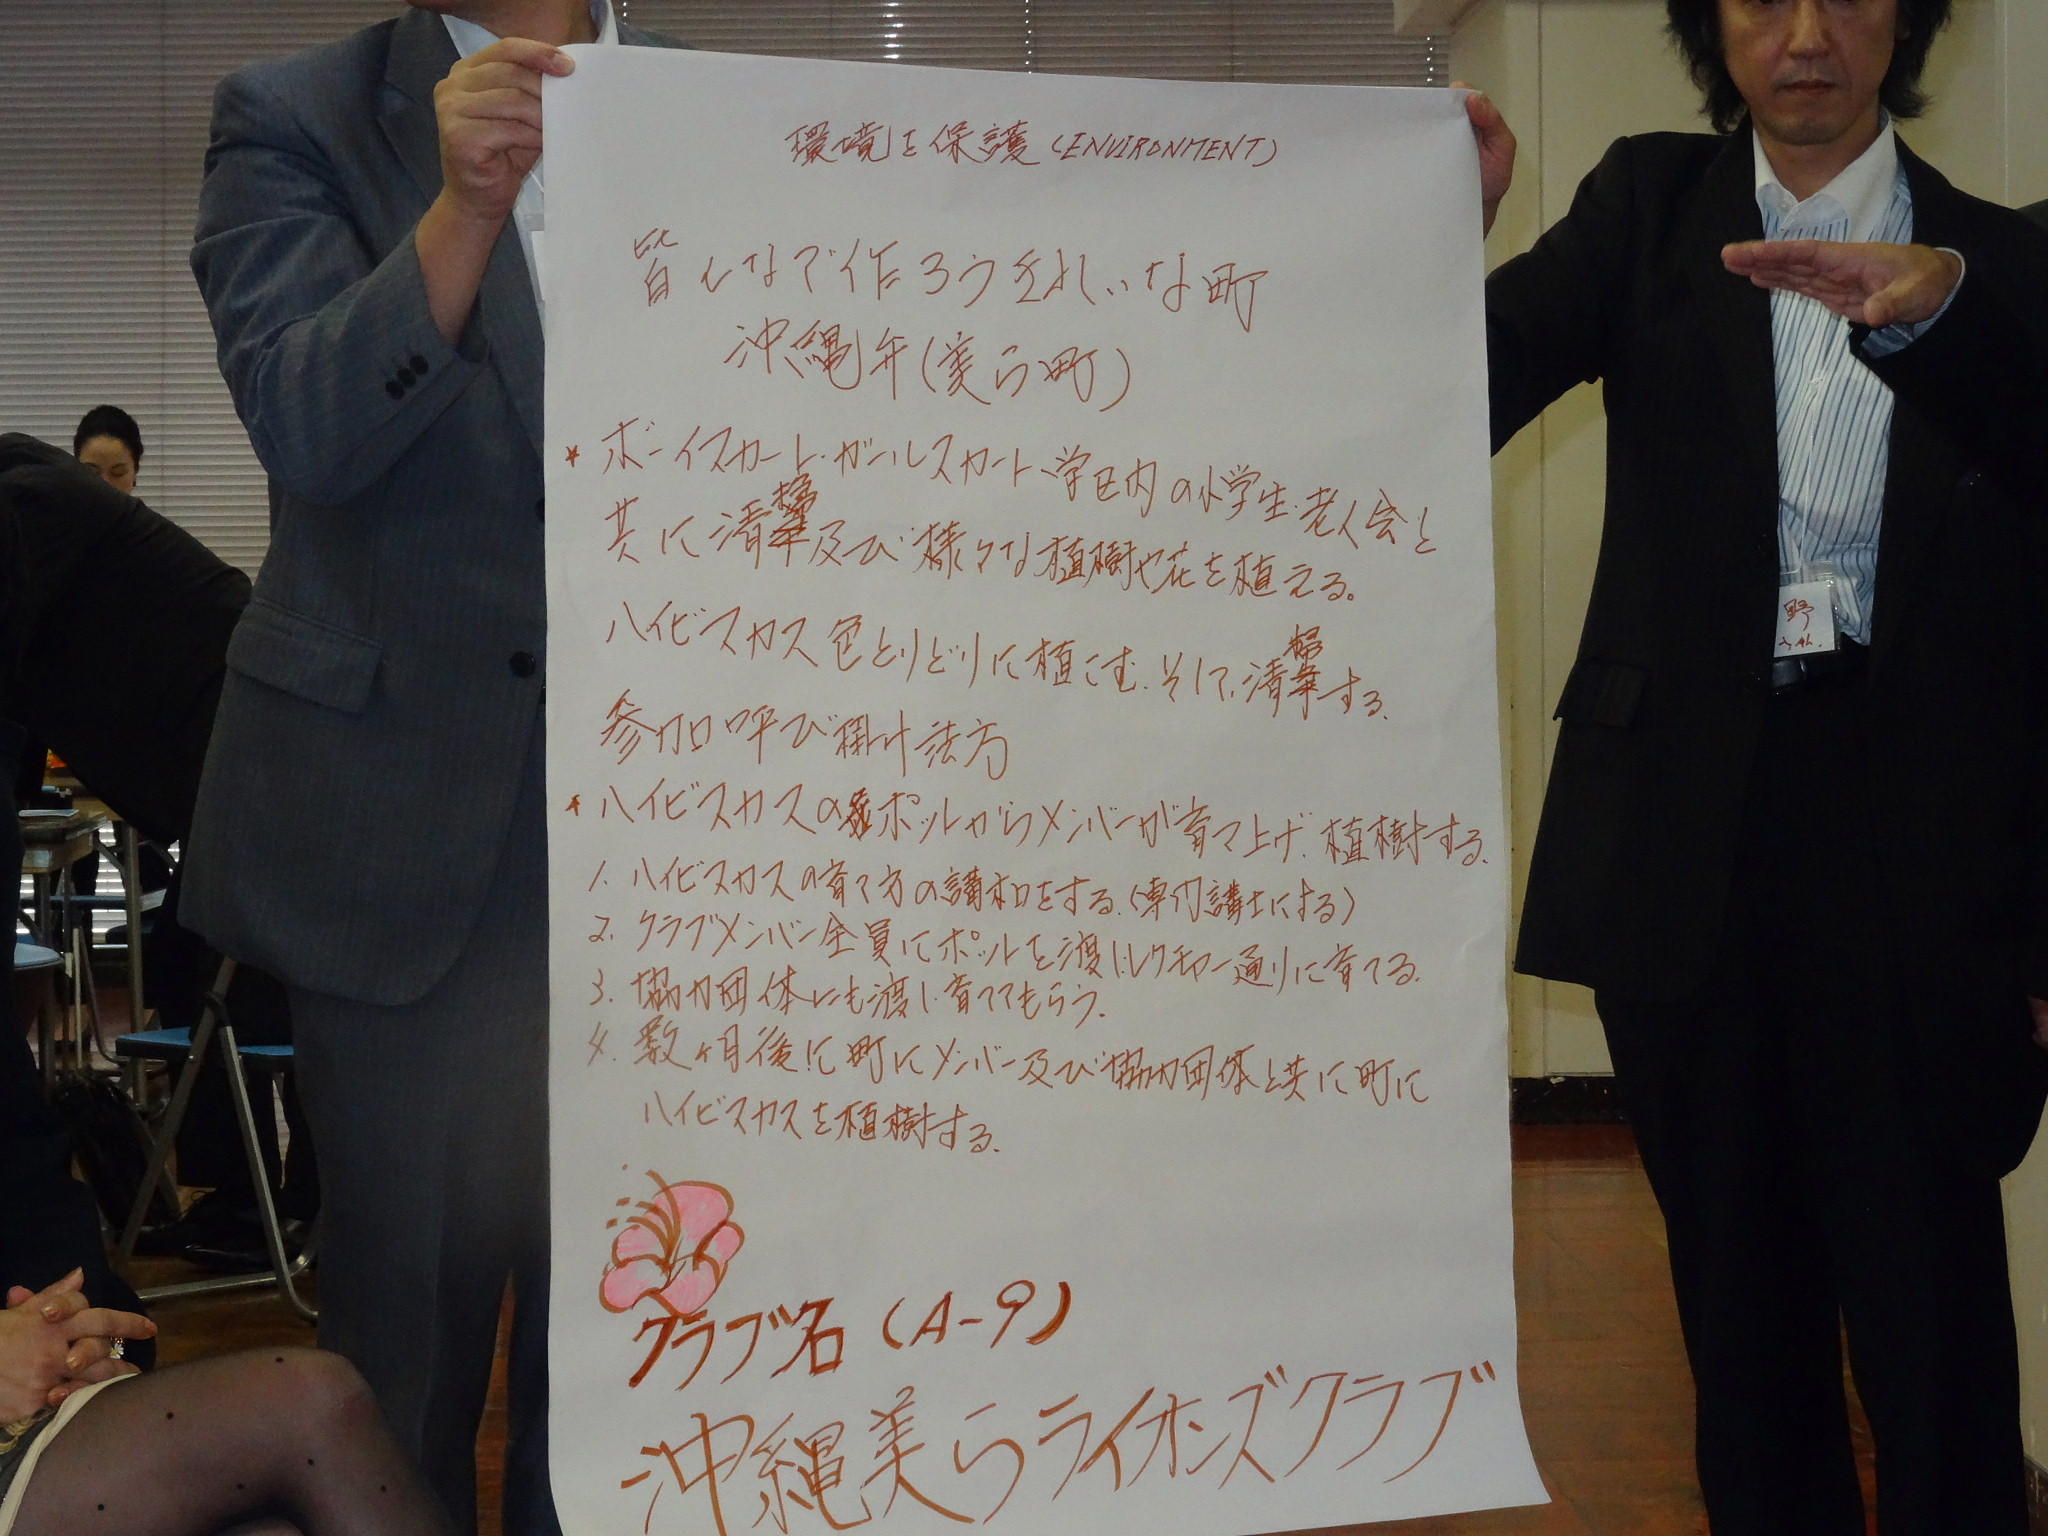 環境を保護(ENVIRONMENT)
皆んなで作ろうきれいな町
沖縄弁(美ら町)
* ボーイスカート・ガールスカート、学区内の小学生・老人会と
共に清掃及び様々な植樹や花を植える。
ハイビスカス色とりどりに植こむ、そして、清掃する。
参加呼び掛け法方
* ハイビスカスのポットからメンバーが育て上げ、植樹する。
1. ハイビスカスの育て方の講和をする。(専門講士にする)
2. クラブメンバー全員にポットを渡し、レクチャー通りに育てる。
3. 協力団体にも渡し育ててもらう。
4. 数ヶ月後に町にメンバー及び協力団体と共に町に
ハイビスカスを植樹する。
クラブ名 (A-9)
沖縄美らライオンズクラブ
野